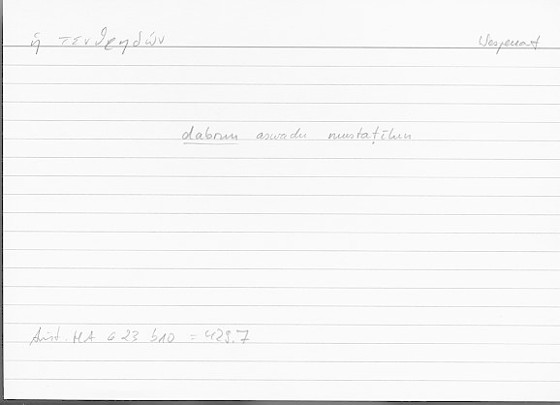 ἡ τενθρηδών Wespenart
dabrun aswadu mustaṭīlun
Arist. HA 623 b10 = 429.7